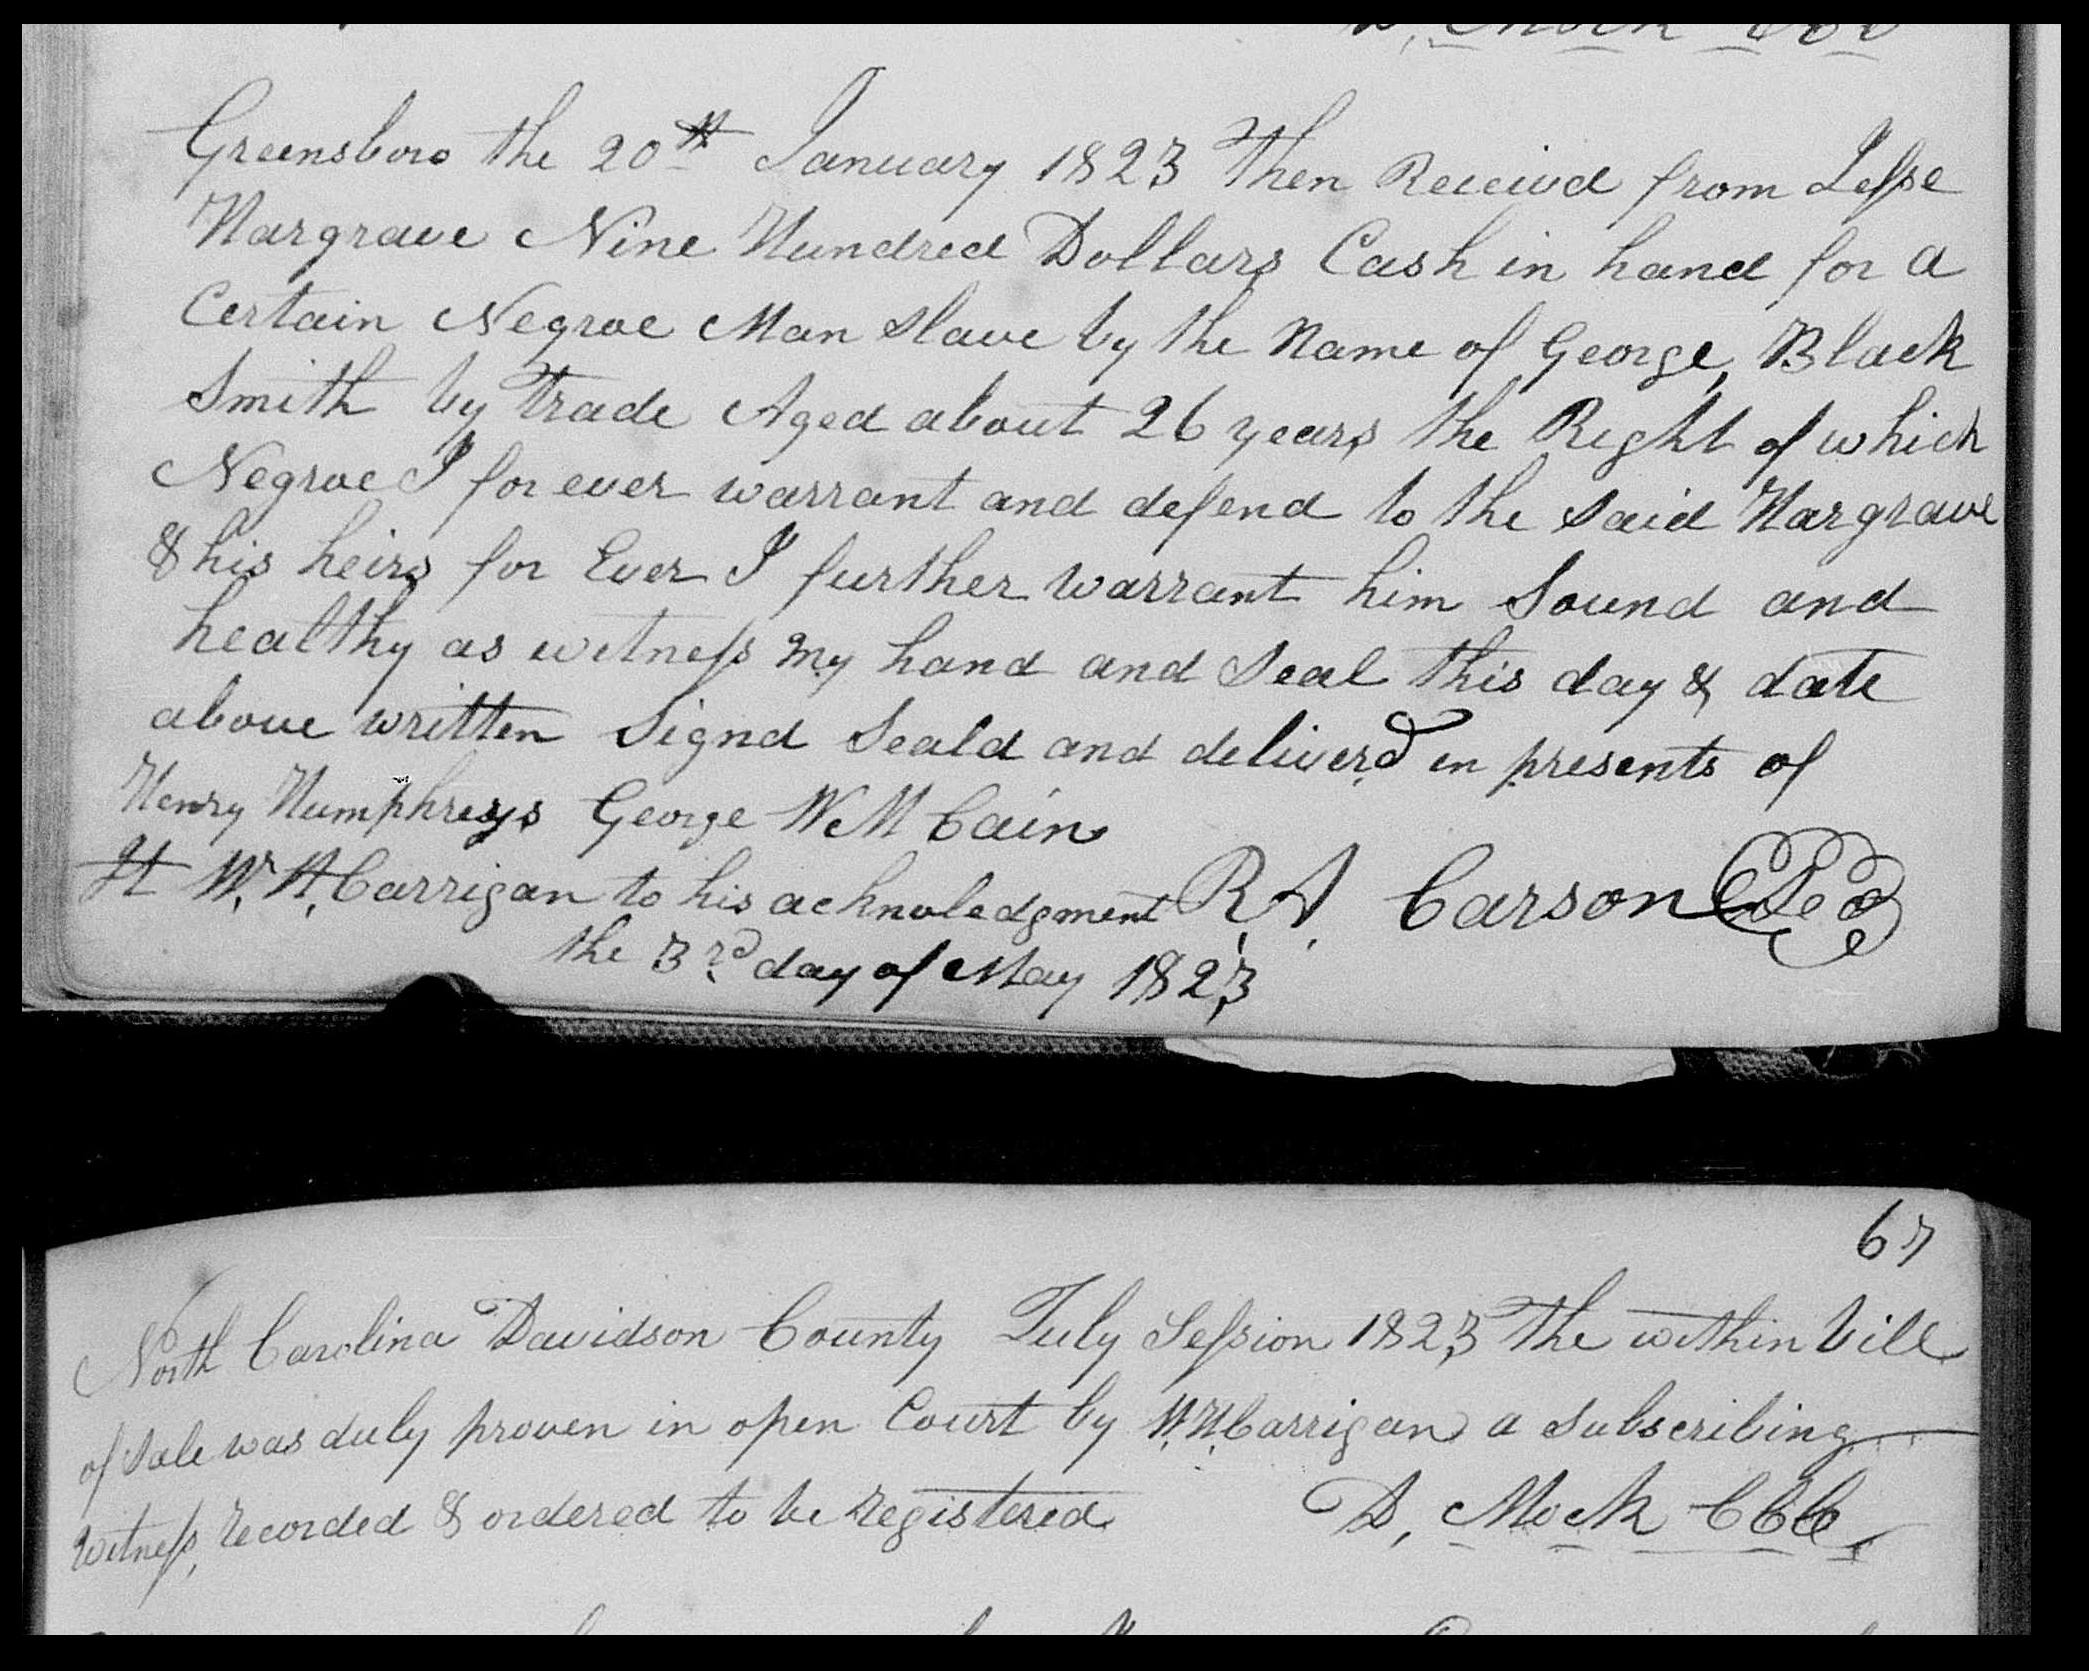 D, Mock CCC
Greensboro the 20th January 1823 Then Receivd from Jesse
Hargrave Nine Hundred Dollars Cash in hand for a
Certain Negroe Man Slave by the Name of George, Black
Smith by Trade Aged about 26 years the Right of which
Negroe I for ever warrant and defend to the said Hargrave
& his heirs for Ever I further warrant him Sound and
healthy as witness my hand and Seal this day & date
above written Signd Seald and deliverd in presents of
Henry Humphreys George W McCain
It W. H. Carrigan to his acknoledgment R. A. Carson Seal
the 3rd day of May 1823
67
North Carolina Davidson County July Session 1823 The within bill
of Sale was duly proven in open Court by W. H. Carrigan a Subscribing
Witness, recorded & ordered to be registered D, Mock CCC